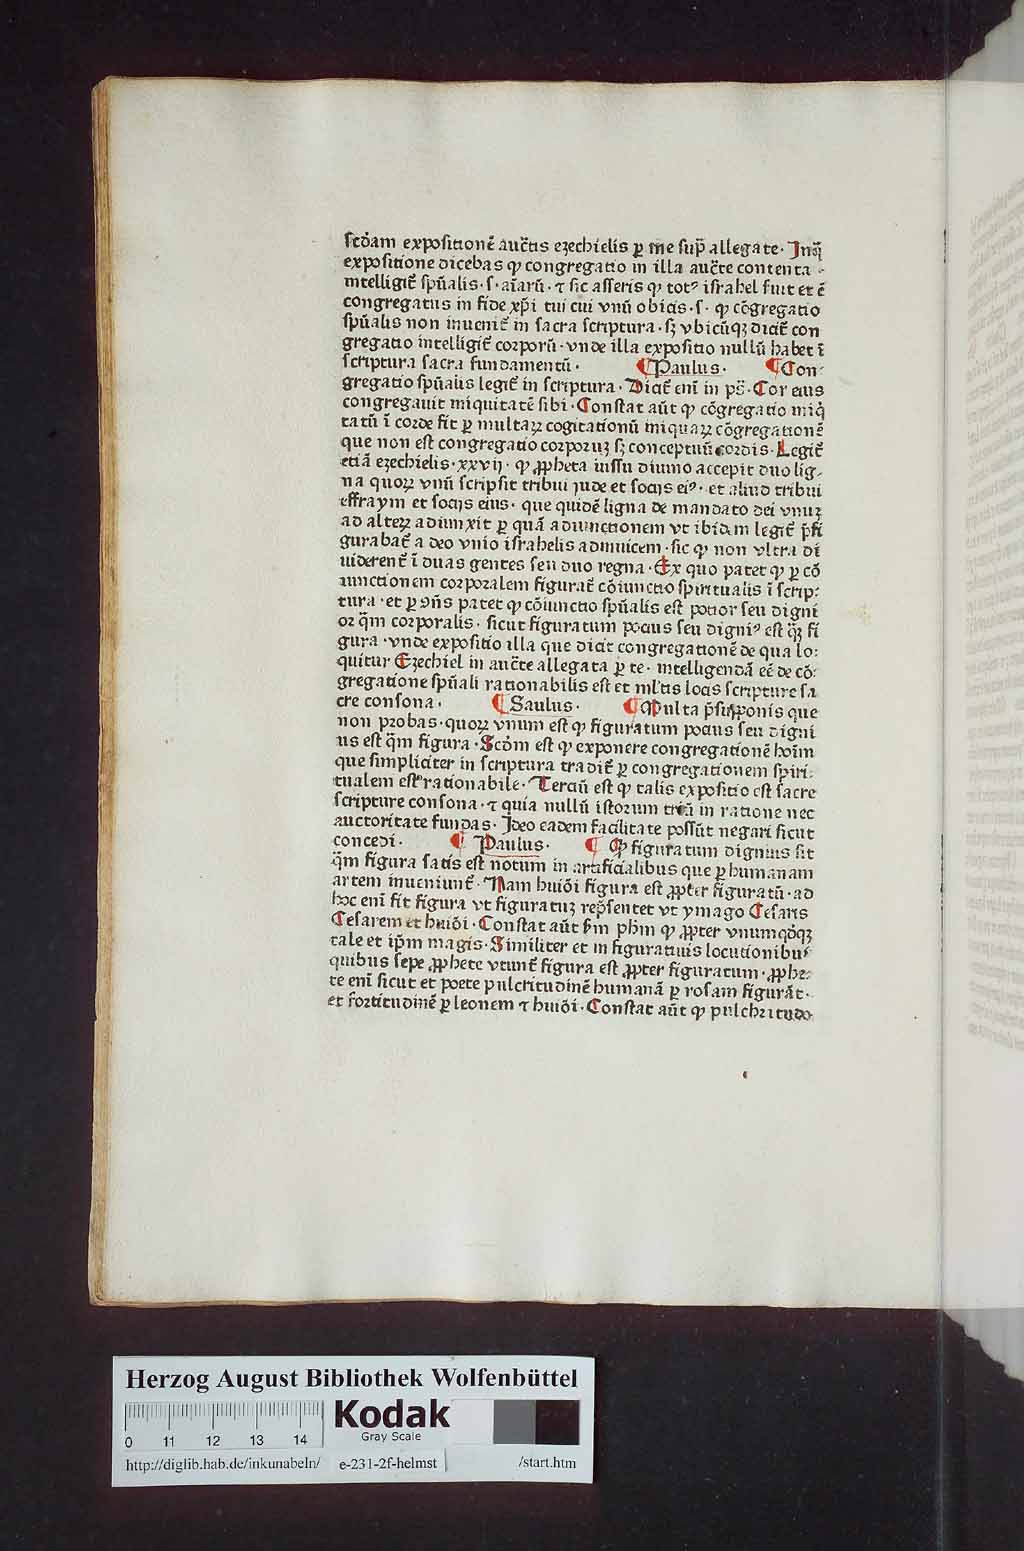 scd̄am expositionē auct̄is ezechielis ꝑ me sup̄ allegate · In qͣ
expositione dicebas ꝙ congregatio in illa auct̄e contenta ·
intelligit᷑ spūalis · s · aīarū · ⁊ sic asseris ꝙ totꝰ israhel fuit et ē
congregatus in fide xp̄i tui cui vnū obicis · s · ꝙ cōgregatio
spūalis non inuenit᷑ in sacra scriptura · sꝫ vbicūqꝫ dicit᷑ con
gregatio intelligit᷑ corporū · vnde illa expositio nullū habet ī
scriptura sacra fundamentū · ¶ Paulus · ¶ Con-
gregatio spūalis legit᷑ in scriptura · Dicit᷑ enī in ps̄ · Cor eius
congregauit iniquitatē sibi · Constat aūt ꝙ cōgregatio iniqͥ
tatū ī corde fit ꝑ multaꝝ cogitationū iniquaꝝ cōgregationē
que non est congregatio corporuꝫ sꝫ conceptuū cordis · Legit᷑
etiā ezechielis · xxvij · ꝙ ꝓpheta iussu diuino accepit duo lig-
na quoꝝ vnū scripsit tribui iude et socijs eiꝰ · et aliud tribui
effraym et socijs eius · que quidē ligna de mandato dei vnuꝫ
ad alteꝝ adiunxit ꝑ quā adiunctionem vt ibidem legit᷑ p̄fi
gurabat᷑ a deo vnio israhelis adinuicem · sic ꝙ non vltra di
uiderent᷑ ī duas gentes seu duo regna · Ex quo patet ꝙ ꝑ cō
iunctionem corporalem figurat᷑ cōiunctio spiritualis ī scrip-
tura · et ꝑ ꝯn̄s patet ꝙ cōiunctio spūalis est potior seu digni
or qm̄ corporalis · sicut figuratum pocius seu digniꝰ est qͣꝫ fi
gura · vnde expositio illa que dicit congregationē de qua lo-
quitur Ezechiel in auct̄e allegata ꝑ te · intelligendā eē de cō-
gregatione spūali rationabilis est et ml̄tis locis scripture sa
cre consona · ¶ Saulus · ¶ Multa p̄supponis que
non probas · quoꝝ vnum est ꝙ figuratum pocius seu digni
us est qm̄ figura · Scd̄m est ꝙ exponere congregationē hoīm
que simpliciter in scriptura tradit᷑ ꝑ congregationem spiri-
tualem est rationabile · Terciū est ꝙ talis expositio est sacre
scripture consona · ⁊ quia nullū istorum triū in ratione nec
auctoritate fundas · Ideo eadem facilitate possūt negari sicut
concedi · ¶ Paulus · ¶ Ꝙ figuratum dignius sit
qm̄ figura satis est notum in artificialibus que ꝑ humanam
artem inueniunt᷑ · Nam huiōi figura est ꝓpter figuratū · ad
hoc enī fit figura vt figuratuꝫ rep̄sentet vt ymago Cesaris
Cesarem et huiōi · Constat aūt sm̄ phm̄ ꝙ ꝓpter vnumqd̄qꝫ
tale et ip̄m magis · Similiter et in figuratiuis locutionibus
quibus sepe ꝓphete vtunt᷑ figura est ꝓpter figuratum · ꝓphe-
te enī sicut et poete pulcritudinē humanā ꝑ rosam figurāt ·
et fortitudinē ꝑ leonem ⁊ huiōi · Constat aūt ꝙ pulchritudo
Herzog August Bibliothek Wolfenbüttel
0 11 12 13 14
Kodak
Gray Scale
http://diglib.hab.de/inkunabeln/ e-231-2f-helmst /start.htm